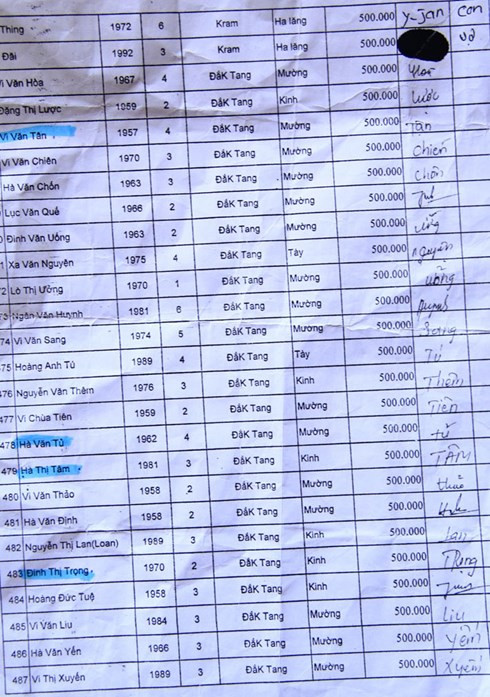 Thing 1972 6 Kram Ha lăng 500.000 Y-Jan con
Đài 1992 3 Kram Ha lăng 500.000 vợ
Vi Văn Hòa 1967 4 ĐắK Tang Mường 500.000 Hòa
Đặng Thị Lược 1959 2 ĐắK Tang Kinh 500.000 Lược
Vi Văn Tân 1957 4 ĐắK Tang Mường 500.000 Tân
Vi Văn Chiên 1970 3 ĐắK Tang Mường 500.000 Chiên
Hà Văn Chốn 1963 3 ĐắK Tang Mường 500.000 chốn
Lục Văn Quế 1966 2 ĐắK Tang Mường 500.000
Đinh Văn Uống 1963 2 ĐắK Tang Mường 500.000 uống
1 Xa Văn Nguyện 1975 4 ĐắK Tang Tày 500.000 nguyện
2 Lò Thị Ưởng 1970 1 ĐắK Tang Mường 500.000 ưởng
73 Ngân Văn Huynh 1981 6 ĐắK Tang Mường 500.000
74 Vi Văn Sang 1974 5 ĐắK Tang Mường 500.000 Sang
475 Hoàng Anh Tú 1989 4 ĐắK Tang Tày 500.000 Tú
476 Nguyễn Văn Thêm 1976 3 ĐắK Tang Kinh 500.000 Thêm
477 Vi Chùa Tiên 1959 2 ĐắK Tang Mường 500.000 Tiên
478 Hà Văn Tủ 1962 4 ĐắK Tang Mường 500.000 tủ
479 Hà Thị Tâm 1981 3 ĐắK Tang Kinh 500.000 TÂM
480 Vi Văn Thảo 1958 2 ĐắK Tang Mường 500.000 thảo
481 Hà Văn Định 1958 2 ĐắK Tang Mường 500.000
482 Nguyễn Thị Lan(Loan) 1989 3 ĐắK Tang Kinh 500.000 lan
483 Đinh Thị Trọng 1970 2 ĐắK Tang Kinh 500.000 Trọng
484 Hoàng Đức Tuệ 1958 3 ĐắK Tang Kinh 500.000
485 Vi Văn Liu 1984 3 ĐắK Tang Mường 500.000 Liu
486 Hà Văn Yến 1966 3 ĐắK Tang Mường 500.000 yến
487 Vi Thị Xuyến 1989 3 ĐắK Tang Mường 500.000 xuyến